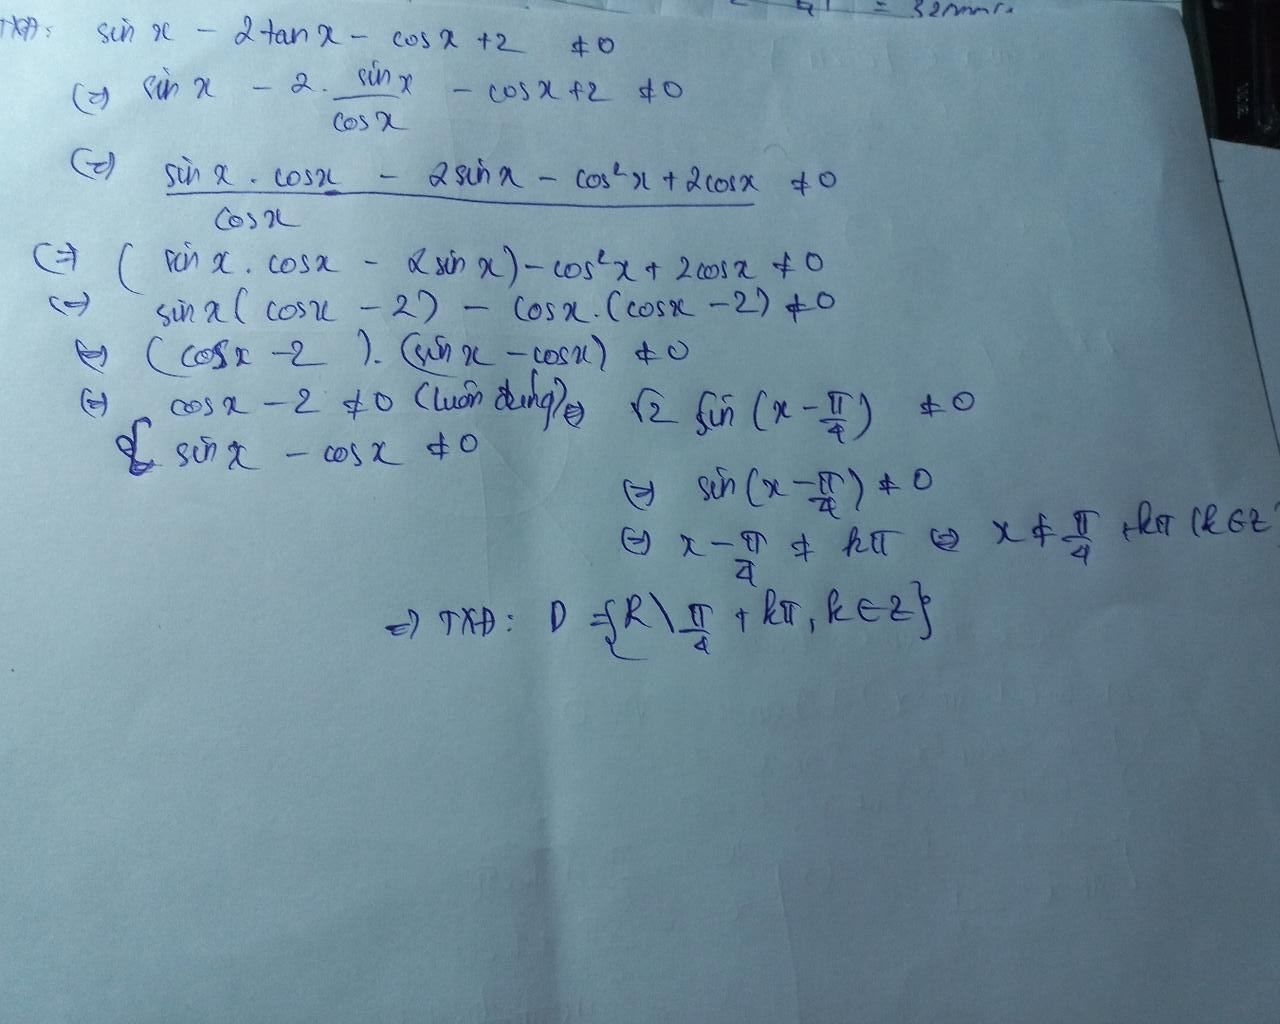 = 32mm
TXĐ: sin x - 2 tan x - cos x + 2 ≠ 0
(=) sin x - 2. sin x / cos x - cos x + 2 ≠ 0
(=) sin x . cos x - 2 sin x - cos² x + 2 cos x / cos x ≠ 0
(=) ( sin x . cos x - 2 sin x ) - cos² x + 2 cos x ≠ 0
(=) sin x ( cos x - 2 ) - cos x . ( cos x - 2 ) ≠ 0
(=) ( cos x - 2 ) . ( sin x - cos x ) ≠ 0
(=) { cos x - 2 ≠ 0 (luôn đúng) (=) √2 sin ( x - π/4 ) ≠ 0
sin x - cos x ≠ 0
(=) sin ( x - π/4 ) ≠ 0
(=) x - π/4 ≠ kπ (=) x ≠ π/4 + kπ (k ∈ Z
=> TXĐ: D = { R \ π/4 + kπ, k ∈ Z }